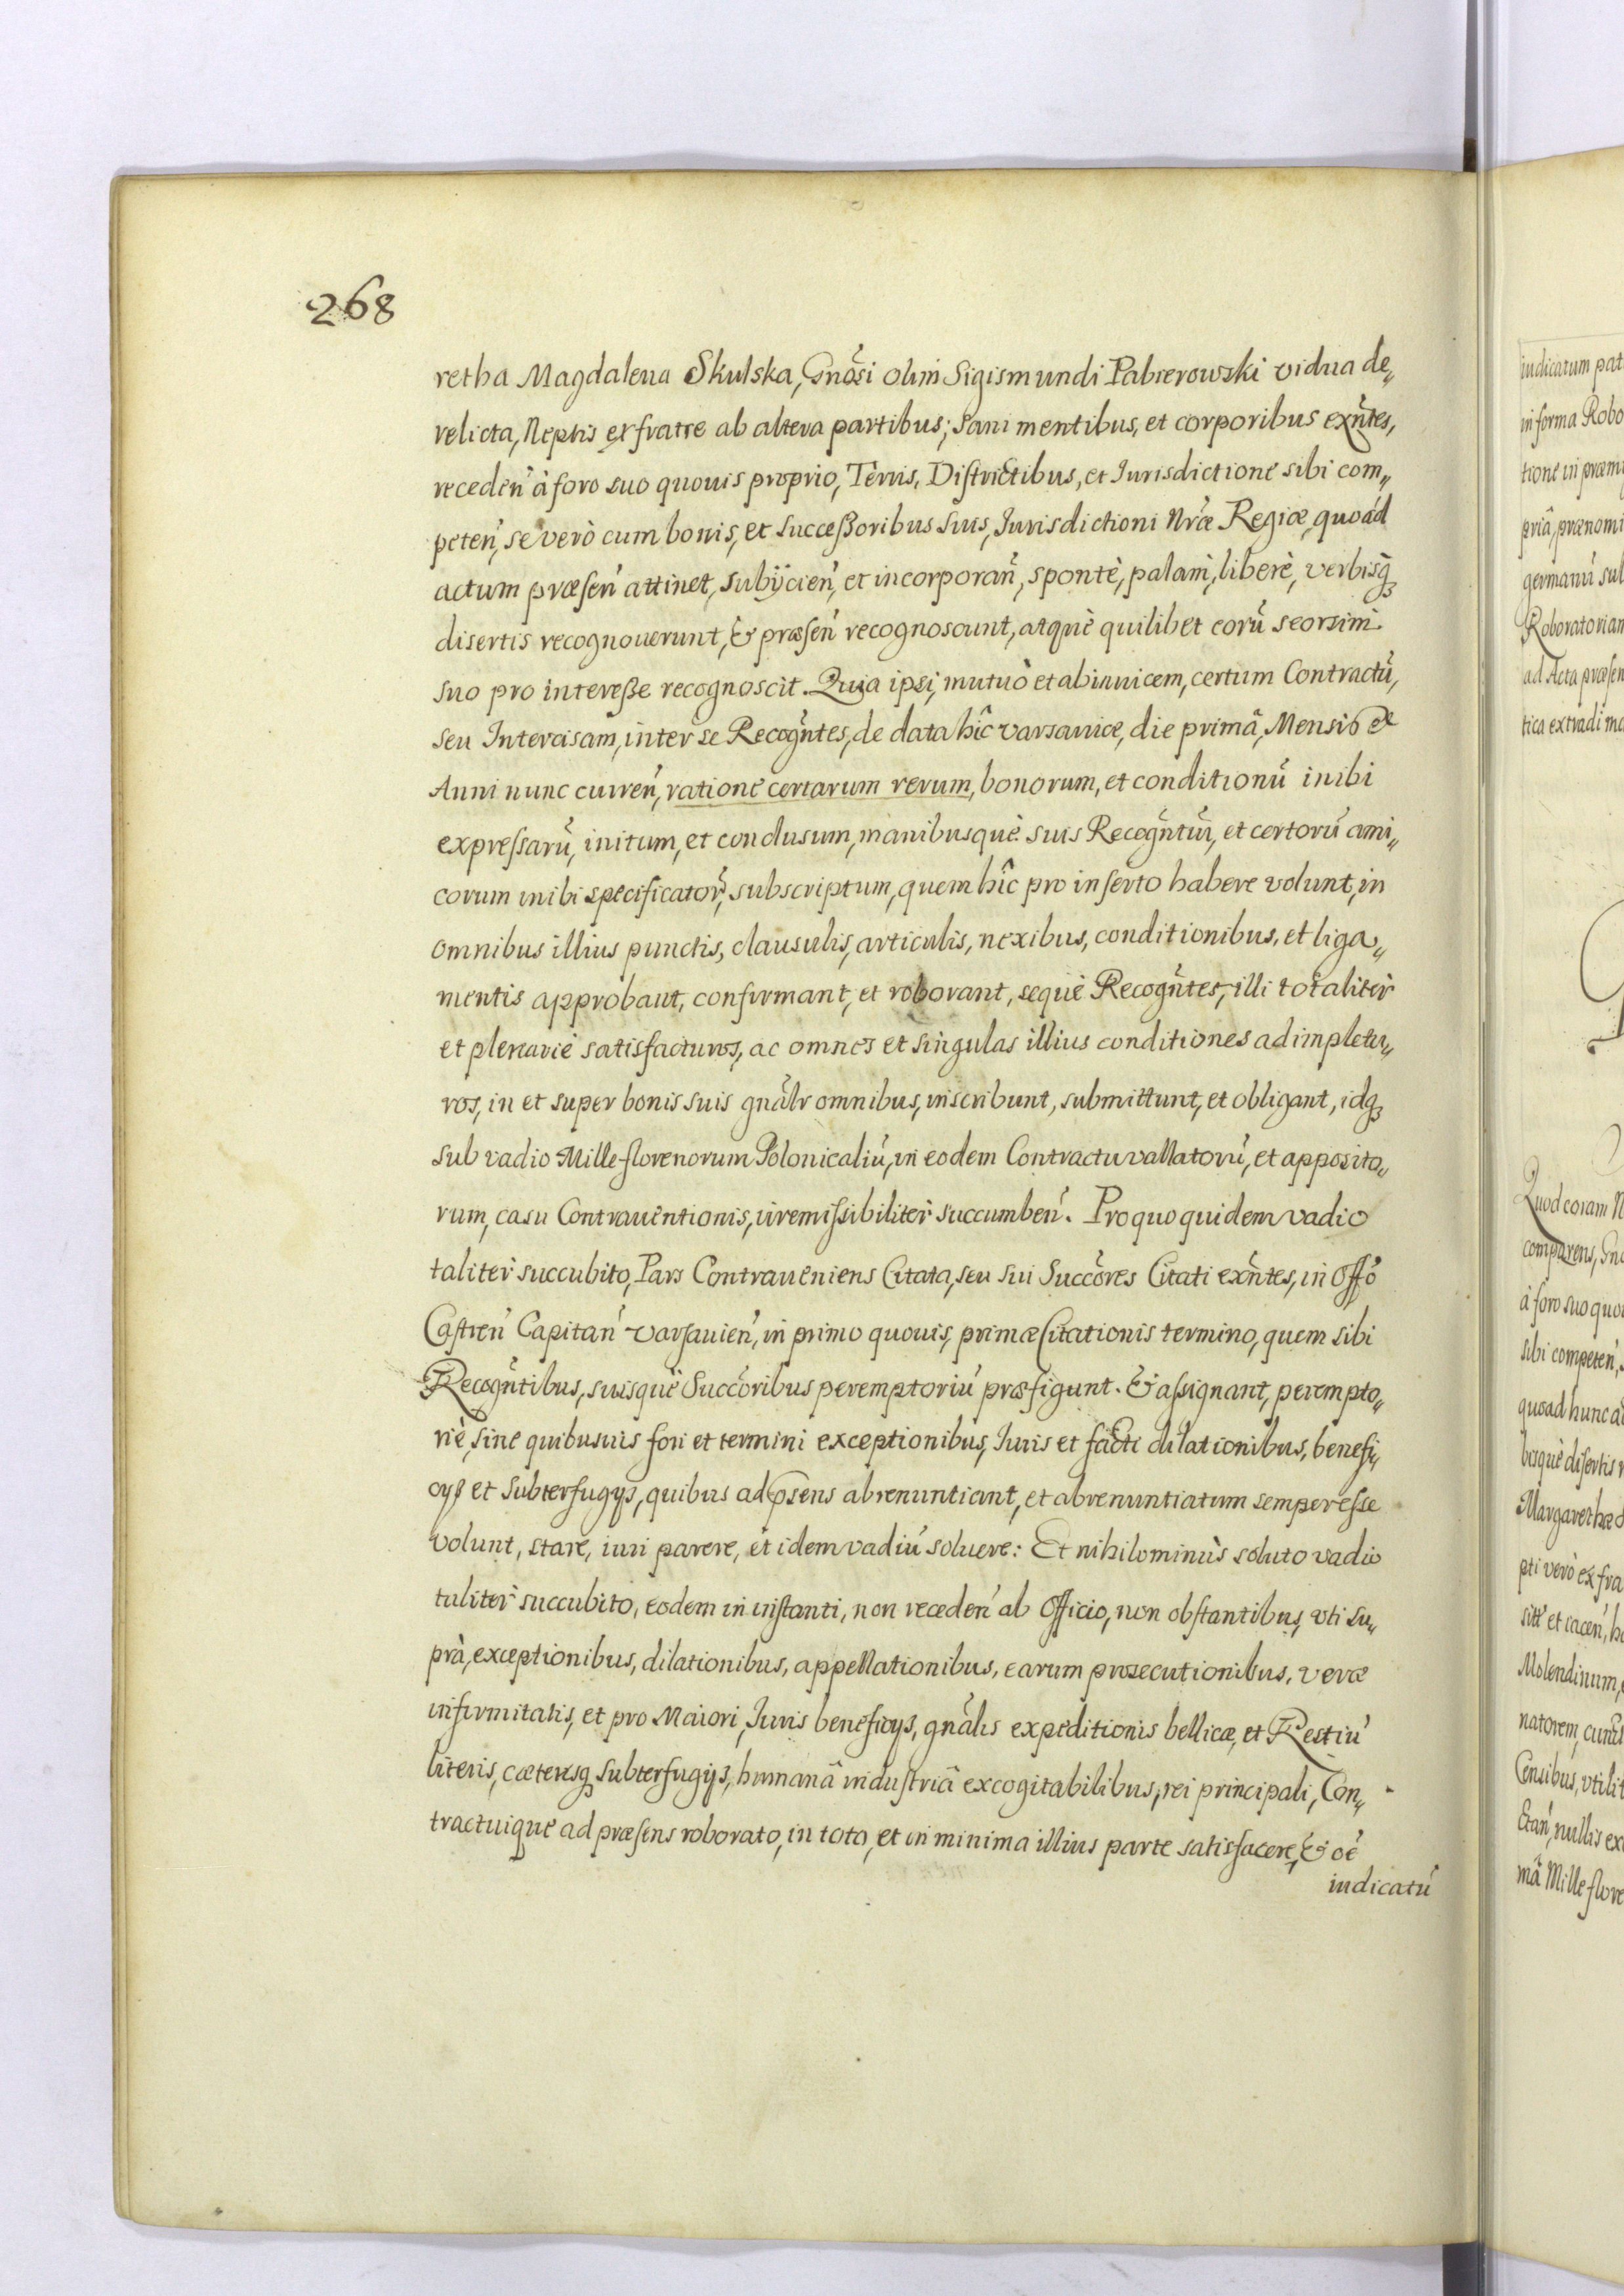 268
retha Magdalena Skulska, Gnosi olim Sigismundi Pabierowski vidua de„
relicta, Neptis ex fratre ab altera partibus; sani mentibus, et corporibus exñtes,
receden̄ à foro suo quouis proprio, Terris, Districtibus, et Jurisdictione sibi com„
peten̄, se verò cum bonis, et Successoribus suis, Jurisdictioni Nræ Regiæ, quoad
actum præsen̄ attinet, subijcien̄, et incorporan̄, spontè, palam, liberè, verbisq₃
disertis recognouerunt, & præsen̄ recognoscunt, atquè quilibet eorū seorsim
suo pro interesse recognoscit. Quia ipsi, mutuò et abinuicem, certum Contractū,
seu Intercisam, inter se Recogñtes, de data hîc varsauiæ, die primâ, Mensis et
Anni nunc curren̄, ratione certarum rerum, bonorum, et conditionū inibi
expressarū, initum, et conclusum, manibusquè suis Recogñtūi, et certorū ami„
corum inibi specificator̄, subscriptum, quem hîc pro inserto habere volunt, in
omnibus illius punctis, clausulis, articulis, nexibus, conditionibus, et liga„
mentis approbant, confirmant, et roborant, sequè Recogñtes, illi totaliter
et plenariè satisfacturos, ac omnes et singulas illius conditiones adimpletu„
ros, in et super bonis suis gnãlr omnibus, inscribunt, submittunt, et obligant, idq₃
sub vadio Mille florenorum Polonicaliū, in eodem Contractu vallatorū, et apposito„
rum, casu Contrauentionis, irremissibiliter succumben̄. Pro quo quidem vadio
taliter succubito, Pars Contraueniens Citata, seu sui Succõres Citati exñtes, in Offõ
Castren̄ Capitan̄ Varsauien̄, in primo quouis, primæ Citationis termino, quem sibi
Recogñtibus, suisquè Succõribus peremptoriū præfigunt. & assignant, perempto„
riè, sine quibusuis fori et termini exceptionibus, Juris et facti dilationibus, benefi„
cys et subterfugys, quibus ad psens abrenuntiant, et abrenuntiatum semper esse
volunt, stare, iuri parere, et idem vadiū soluere: Et nihilominùs soluto vadio
taliter succubito, eodem in instanti, non receden̄ ab Officio, non obstantibus, vti su„
prà, exceptionibus, dilationibus, appellationibus, earum prosecutionibus, veræ
infirmitatis, et pro Maiori, Juris beneficys, gnãlis expeditionis bellicæ, et Restiū
literis, cæterisq₃ subterfugijs, humanâ industriâ excogitabilibus, rei principali, Con„
tractuiquè ad præsens roborato, in toto, et in minima illius parte satisfacere, & oē
iudicatū
iudicatum pat
in forma Robo
tione in præmi
priâ, prænomi
germanū sul
Roboratoriam
ad Acta præsen
tica extradi ma
Quod coram N
comparens, Gn
à foro suo quo
sibi competen̄,
quoad hunc a
bisquè disertis r
Margarethæ
pti verò ex fra
sitt et iacen̄, h
Molendinum,
natorem, cum
Censibus, vtilit
Etan̄, nullis ex
mã Mille flore